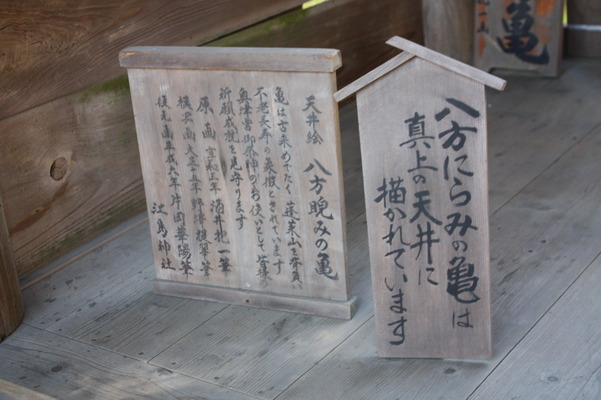 八方にらみの亀は
真上の天井に
描かれています
天井絵 八方睨みの亀
亀は古来めでたく蓬莱山を背負い
不老長寿の象徴とされています
奥津宮御祭神のお使いとして皆様の
祈願成就を見守ります
原画 享和三年 酒井抱一筆
模写画 大正十五年 野澤 筆
復元画 平成六年 片岡華陽筆
江島神社
亀